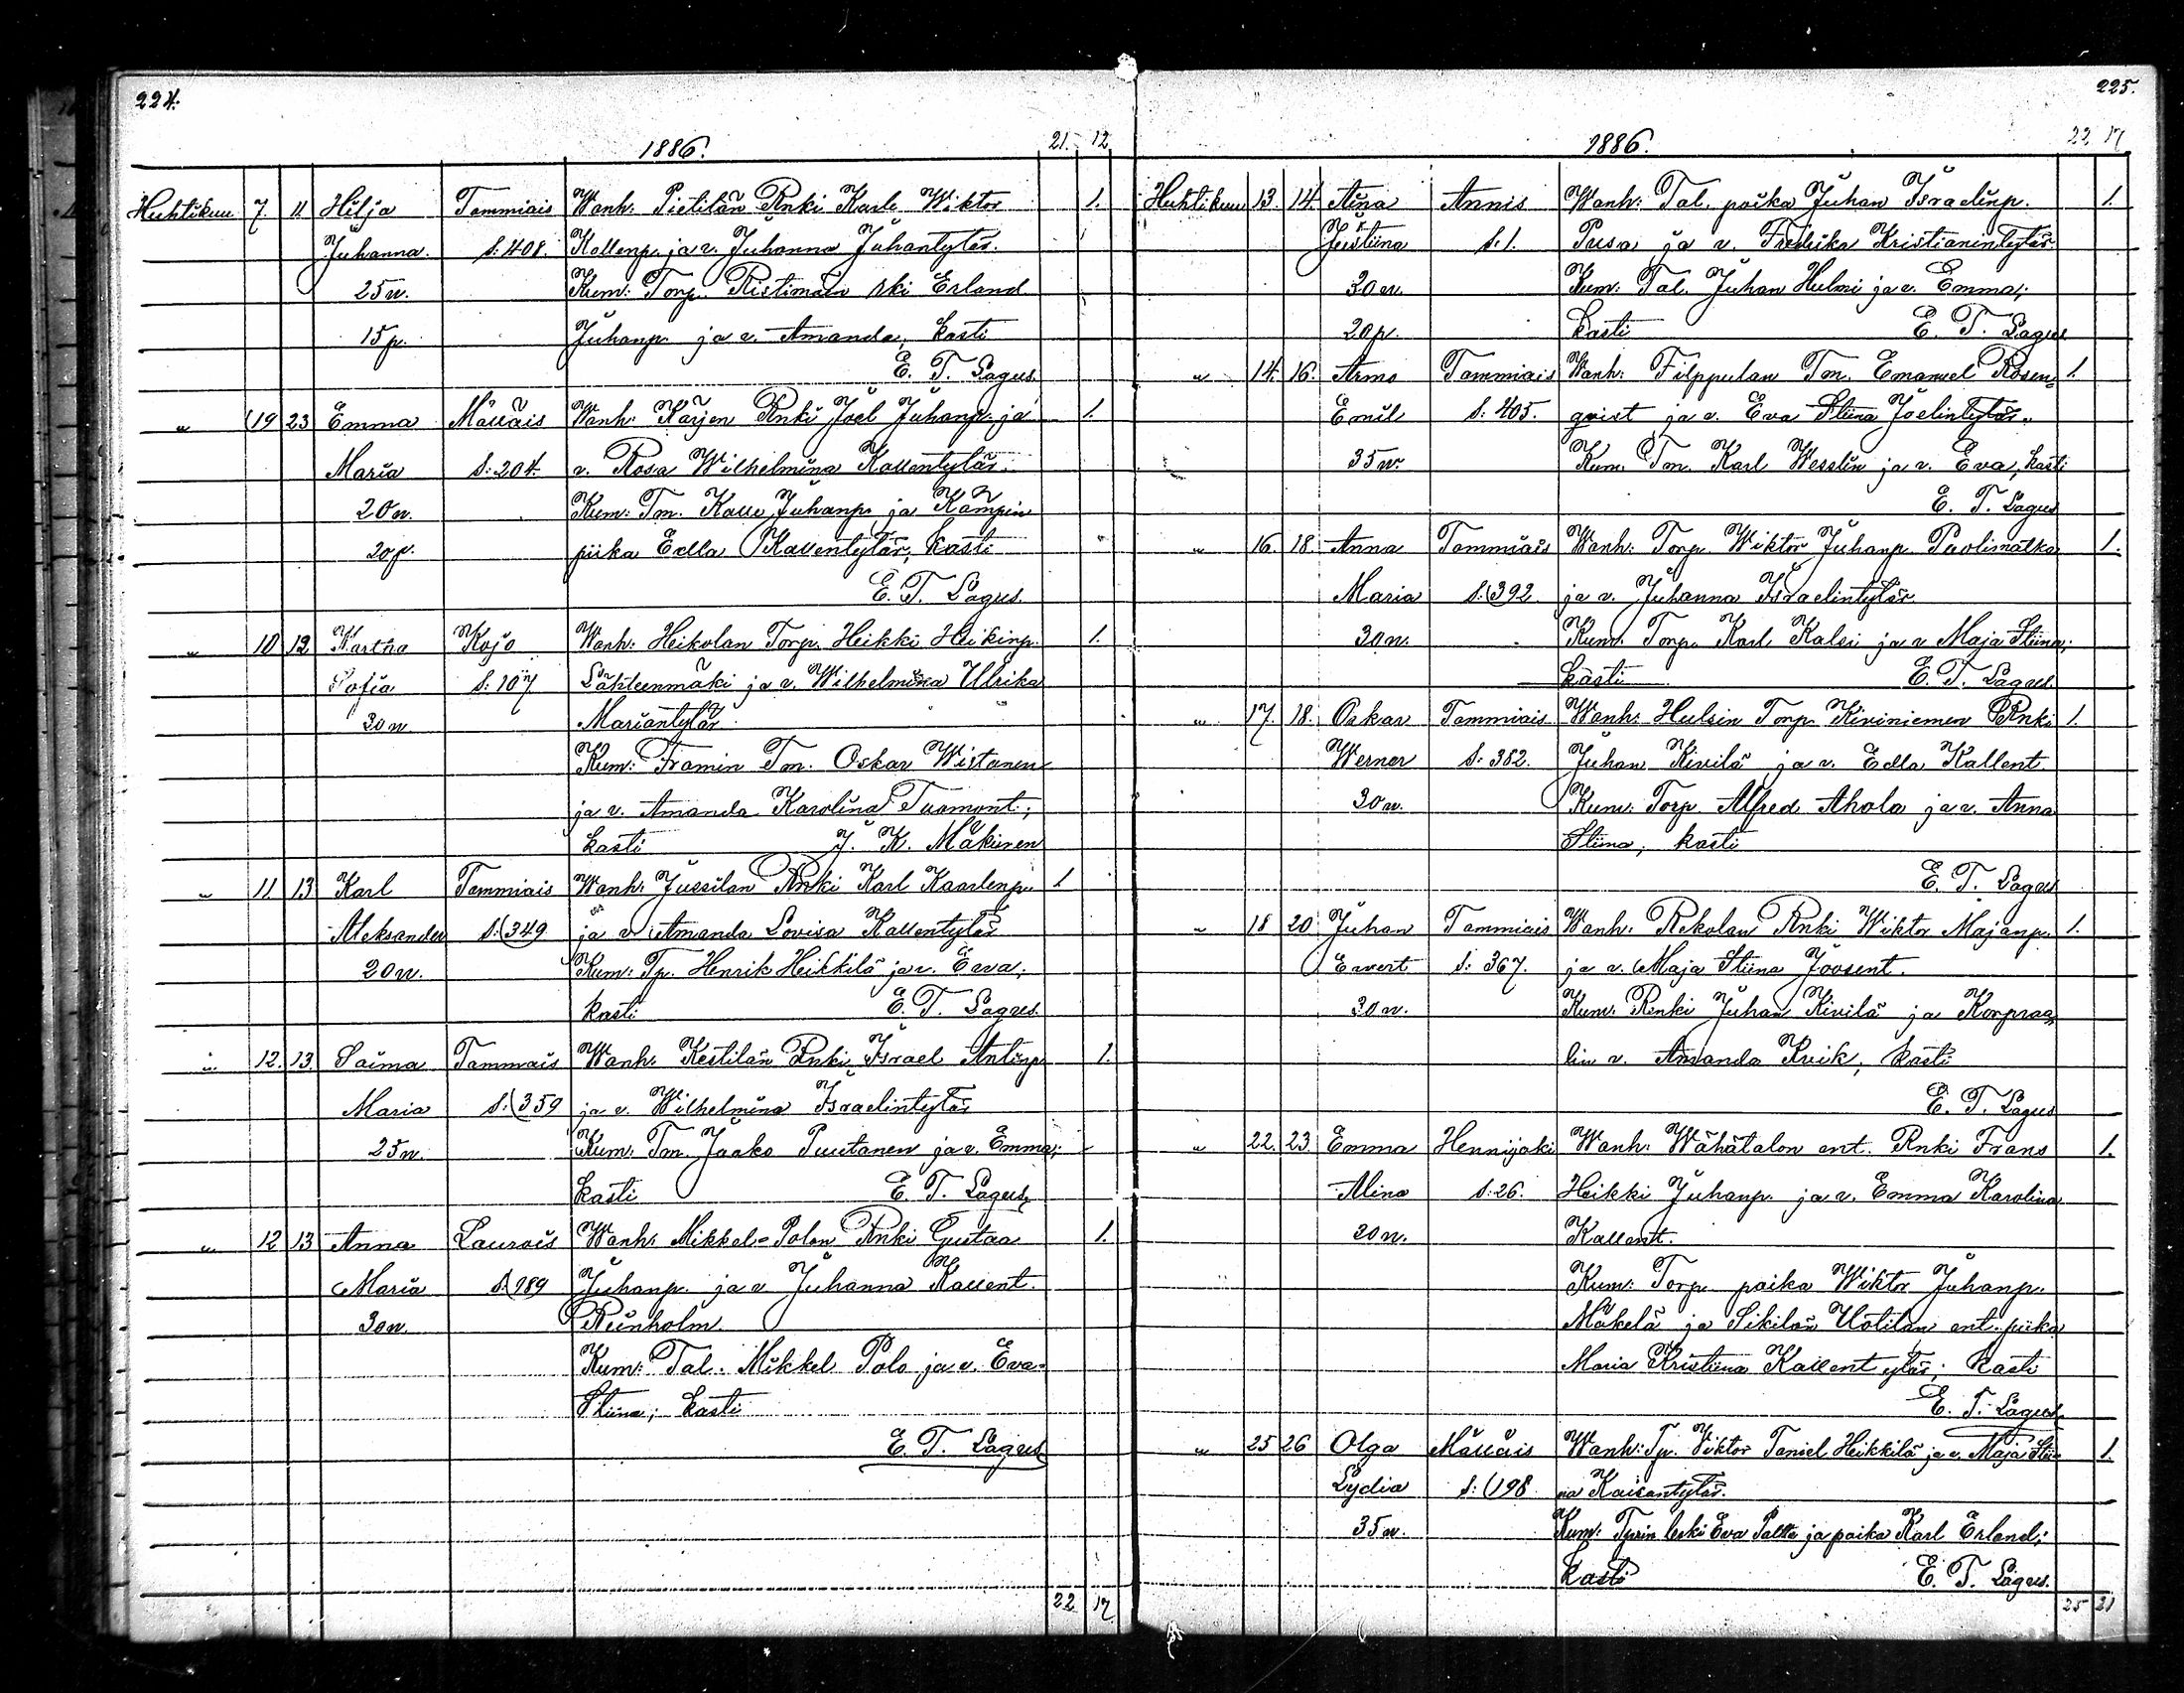 224.
1886.
21. 12
Huhtikuu 7. 11 Hilja Tammiais Wanh: Pietilän Rnki Karle Wiktor 1.
Juhanna. S: 408. Kallenp. ja v. Juhanna Juhantytär.
25 v. Kum: Torp. Ristimäen Erland
15 p. Juhanp. ja v. Amanda, kasti
E. T. Lagus.
" 19 23 Emma Wanh: Karjen Rnki Joel Juhanp. ja 1.
Maria S: 204. v. Rosa Wilhelmina Kallentytär.
20 v. Kum: Tm. Kalle Juhanp. ja Kämpin
20 p. piika Edla Kallentytär, kasti
E. T. Lagus.
" 10 12 Martha Kojo Wanh: Heikolan Torp. Heikki Heikinp. 1.
Sofia S: 107 Lähteenmäki ja v. Wilhelmina Ullrika
30 v Mariantytär.
Kum: Framin Tm. Oskar Wistanen
ja v. Amanda Karolina Tuomont.;
kasti J. K. Mäkinen
" 11. 13. Karl Tammiais Wanh: Jussilan Rnki Karl Kaarlenp. 1
Aleksander S: 349 ja v. Amanda Lovisa Kallentytär
20 v. Kum: Tp. Henrik Heikkilä ja v. Eeva;
kasti E. T. Lagus.
" 12. 13. Saima Tammiais Wanh: Kestilän Rnki Israel Antinp. 1.
Maria S: 359 ja v. Wilhelmina Israelintytär
25 v. Kum: Tm. Jaako Puutanen ja v. Emma;
kasti E. T. Lagus.
" 12 13 Anna Laurois Wanh: Mikkel=Polon Rnki Gustaa 1.
Maria S: 189 Juhanp. ja v Juhanna Kallent.
30 v. Reinholm.
Kum: Tal. Mikkel Polo ja v. Eva-
Stiina; kasti
E. T. Lagus
22 17
225.
1886.
22 17
Huhtikuu 13. 14. Aina Annis Wanh: Tal. poika Juhan Israelinp. 1.
Justiina S: 1. Pusa ja v. Fredrika Kristianintytär
30 v. Kum: Tal. Juhan Hulmi ja v. Emma;
20 p. kasti E. T. Lagus
" 14. 16. Armo Tammiais Wanh: Filppulan Tm. Emanuel Rosen= 1.
Emil S: 405. qvist ja v. Eva Stiina Joelintytär.
35 v. Kum. Tm. Karl Wesslin ja v. Eva, kasti
E. T. Lagus
" 16. 18. Anna Tammiais Wanh: Torp. Wiktor Juhanp. Puolimatka 1.
Maria S: 392. ja v. Juhanna Israelintytär.
30 v. Kum: Torp. Karl Kalsi ja v Maja Stiina;
kasti E. T. Lagus.
" 17. 18. Oskar Tammiais Wanh: Hulsin Torp. Kiviniemen Rnki 1.
Werner S: 382. Juhan Kivilä ja v. Edla Kallent.
30 v. Kum: Torp Alfred Ahola ja v. Anna
Stiina; kasti
E. T. Lagus
" 18 20 Juhan Tammiais Wanh: Rekolan Rnki Wiktor Majanp. 1.
Eevert S: 367. ja v. Maja Stiina Joosent.
30 v. Kum: Renki Juhan Kivilä ja Korpraa
lin v. Amanda Kvik, kasti
E. T. Lagus
" 22. 23. Emma Hennijoki Wanh: Wähätalon ent. Rnki Frans 1.
Alina S: 26. Heikki Juhanp. ja v. Emma Karolina
30 v. Kallent.
Kum: Torp. poika Wiktor Juhanp.
Mäkelä ja Sikilän Uotilan ent. piika
Maria Kristiina Kallent ytär; kasti
E. T. Lagus
" 25 26 Olga Wanh: Tp. Viktor Taniel Heikkilä ja v. Maja Stii- 1.
Lydia S: 198. na Kaisantytär.
35 v. Kum: leski Eva ja poika Karl Erland;
kasti E. T. Lagus.
25 21